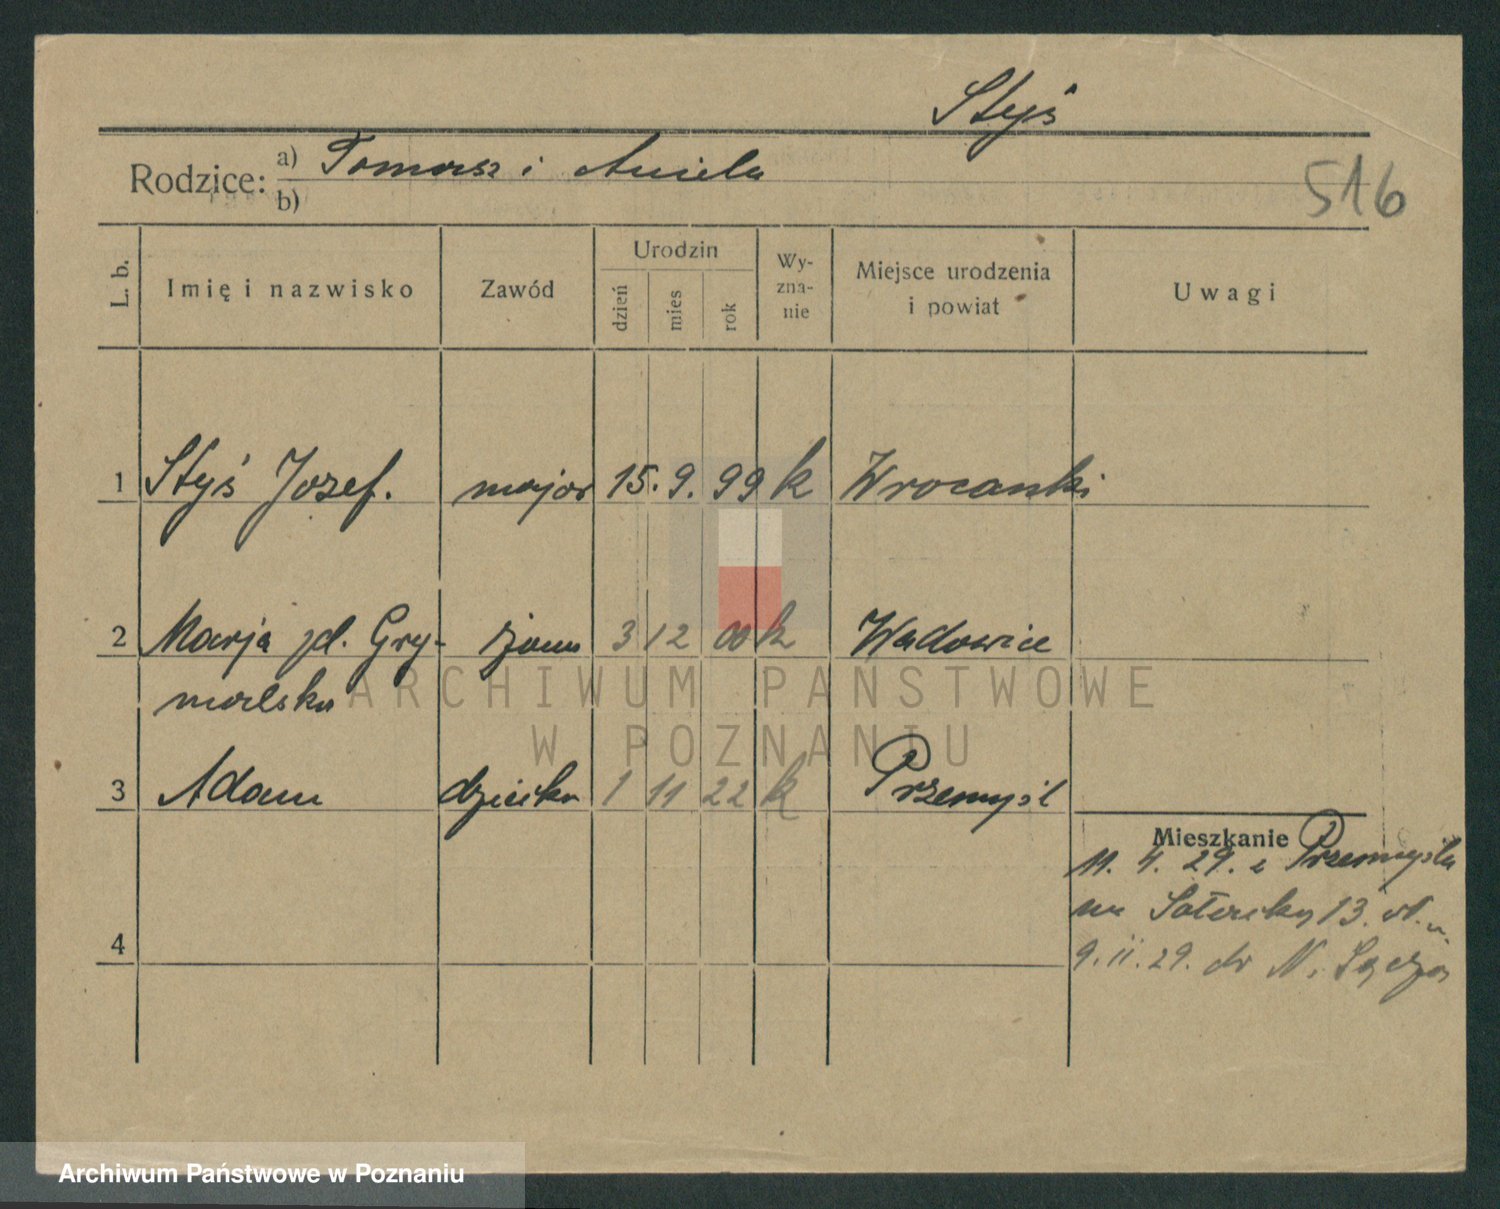 Styś
Rodzice: a) Tomasz i Aniela
b)
516
L. b. Imię i nazwisko Zawód Urodzin dzień mies rok Wy-zna-nie Miejsce urodzenia i powiat Uwagi
1 Styś Józef. major 15. 9. 99 k Wrocanki
2 Marja zd. Gry- żona 3 12 00 k Wadowice
malska
3 Adam dziecko 1 11 22 k Przemyśl
Mieszkanie
11. 4. 29. z Przemyśla
na Sołacką 13.
4
9. 11. 29. do N. Sącza
ARCHIWUM PAŃSTWOWE
W POZNANIU
Archiwum Państwowe w Poznaniu